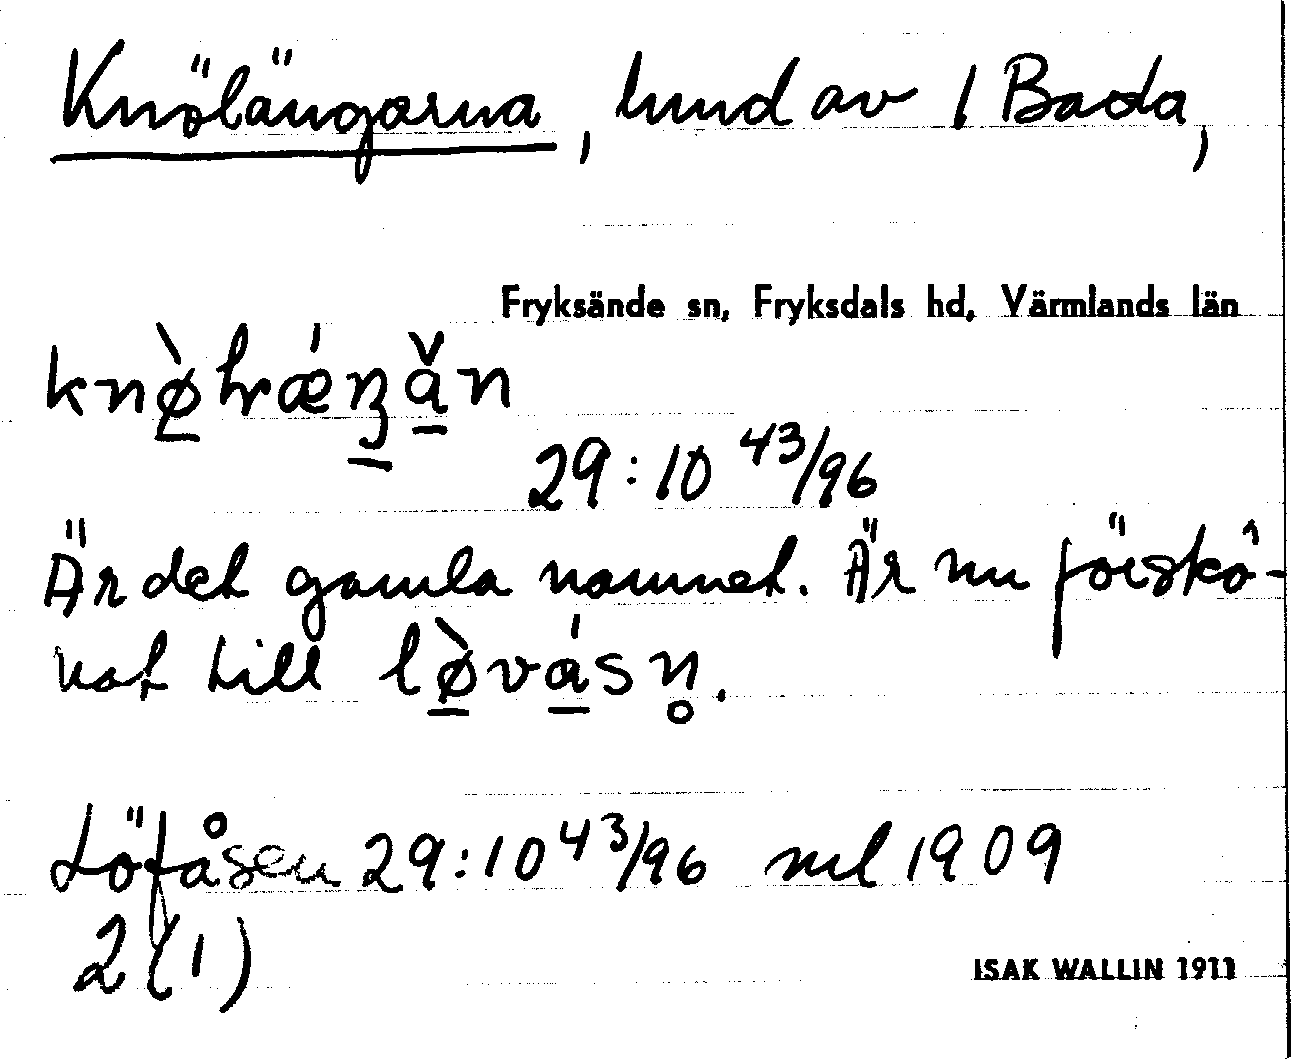 Knölängarna, hmd av 1 Bada,
Fryksände sn, Fryksdals hd, Värmlands län
29:10 43/96
Är det gamla namnet. Är nu förskö-
nat till
Löfåsen 29:10 43/96 ml 1909
2 (1)
ISAK WALLIN 1911